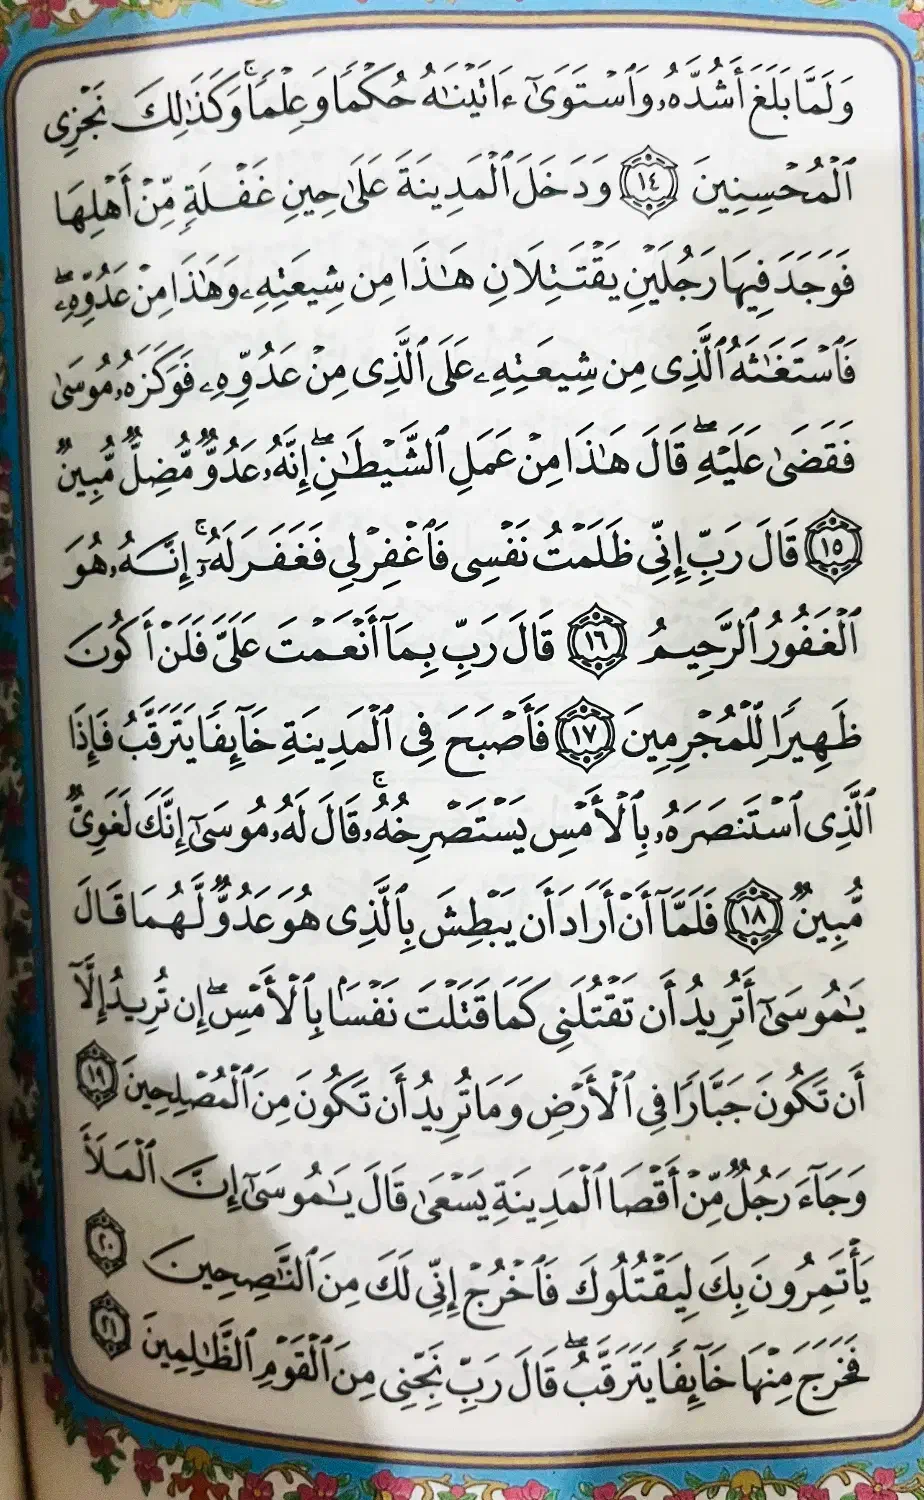 وَلَمَّا بَلَغَ أَشُدَّهُۥ وَٱسْتَوَىٰٓ ءَاتَيْنَـٰهُ حُكْمًا وَعِلْمًا ۚ وَكَذَٰلِكَ نَجْزِى
ٱلْمُحْسِنِينَ ﴿١٤﴾ وَدَخَلَ ٱلْمَدِينَةَ عَلَىٰ حِينِ غَفْلَةٍ مِّنْ أَهْلِهَا
فَوَجَدَ فِيهَا رَجُلَيْنِ يَقْتَتِلَانِ هَـٰذَا مِن شِيعَتِهِۦ وَهَـٰذَا مِنْ عَدُوِّهِۦ ۖ
فَٱسْتَغَـٰثَهُ ٱلَّذِى مِن شِيعَتِهِۦ عَلَى ٱلَّذِى مِنْ عَدُوِّهِۦ فَوَكَزَهُۥ مُوسَىٰ
فَقَضَىٰ عَلَيْهِ ۖ قَالَ هَـٰذَا مِنْ عَمَلِ ٱلشَّيْطَـٰنِ ۖ إِنَّهُۥ عَدُوٌّ مُّضِلٌّ مُّبِينٌ
﴿١٥﴾ قَالَ رَبِّ إِنِّى ظَلَمْتُ نَفْسِى فَٱغْفِرْ لِى فَغَفَرَ لَهُۥٓ ۚ إِنَّهُۥ هُوَ
ٱلْغَفُورُ ٱلرَّحِيمُ ﴿١٦﴾ قَالَ رَبِّ بِمَآ أَنْعَمْتَ عَلَىَّ فَلَنْ أَكُونَ
ظَهِيرًا لِّلْمُجْرِمِينَ ﴿١٧﴾ فَأَصْبَحَ فِى ٱلْمَدِينَةِ خَآئِفًا يَتَرَقَّبُ فَإِذَا
ٱلَّذِى ٱسْتَنصَرَهُۥ بِٱلْأَمْسِ يَسْتَصْرِخُهُۥ ۚ قَالَ لَهُۥ مُوسَىٰٓ إِنَّكَ لَغَوِىٌّ
مُّبِينٌ ﴿١٨﴾ فَلَمَّآ أَنْ أَرَادَ أَن يَبْطِشَ بِٱلَّذِى هُوَ عَدُوٌّ لَّهُمَا قَالَ
يَـٰمُوسَىٰٓ أَتُرِيدُ أَن تَقْتُلَنِى كَمَا قَتَلْتَ نَفْسًۢا بِٱلْأَمْسِ ۖ إِن تُرِيدُ إِلَّآ
أَن تَكُونَ جَبَّارًا فِى ٱلْأَرْضِ وَمَا تُرِيدُ أَن تَكُونَ مِنَ ٱلْمُصْلِحِينَ ﴿١٩﴾
وَجَآءَ رَجُلٌ مِّنْ أَقْصَا ٱلْمَدِينَةِ يَسْعَىٰ قَالَ يَـٰمُوسَىٰٓ إِنَّ ٱلْمَلَأَ
يَأْتَمِرُونَ بِكَ لِيَقْتُلُوكَ فَٱخْرُجْ إِنِّى لَكَ مِنَ ٱلنَّـٰصِحِينَ ﴿٢٠﴾
فَخَرَجَ مِنْهَا خَآئِفًا يَتَرَقَّبُ ۖ قَالَ رَبِّ نَجِّنِى مِنَ ٱلْقَوْمِ ٱلظَّـٰلِمِينَ ﴿٢١﴾